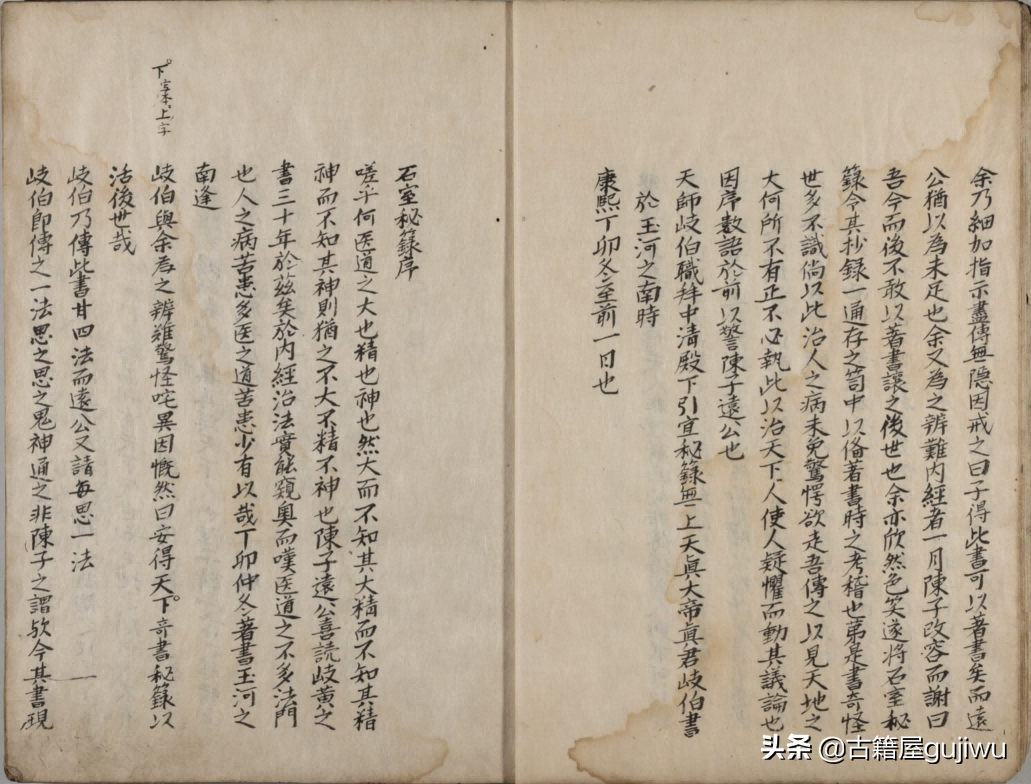 余乃細加指示盡傳無隠因戒之曰子得此書可以著書矣而遠
公猶以為未足也余又為之辨難内經者一月陳子改容而謝曰
吾今而後不敢以著書讓之後世也余亦欣然色笑遂将石室秘
籙令其抄録一通存之笥中以俻著書時之考稽也苐是書奇怪
世多不識倘以此治人之病未免驚愕欲走吾傳之以見天地之
大何所不有正不必執此以治天下人使人疑懼而動其議論也
因序数語於前以警陳子遠公也
天師岐伯職拜中清殿下引宜秘籙無上天真大帝真君岐伯書
於玉河之南時
康熙丁卯冬至前一日也
石室秘籙序
嗟乎何医道之大也精也神也然大而不知其大精而不知其精
神而不知其神則猶之不大不精不神也陳子遠公喜読岐黄之
書三十年於茲矣於内經治法實能窺奥而嘆医道之不多法門
也人之病苦患多医之道苦患少有以哉丁卯仲冬著書玉河之
南逢
岐伯與余為之辨難驚怪咤異因慨然曰安得天下奇書秘籙以
下写本上字
活後世哉
岐伯乃傳此書廿四法而遠公又請每思一法
岐伯即傳之一法思之思之鬼神通之非陳子之謂欤今其書現
头条 @古籍屋gujiwu